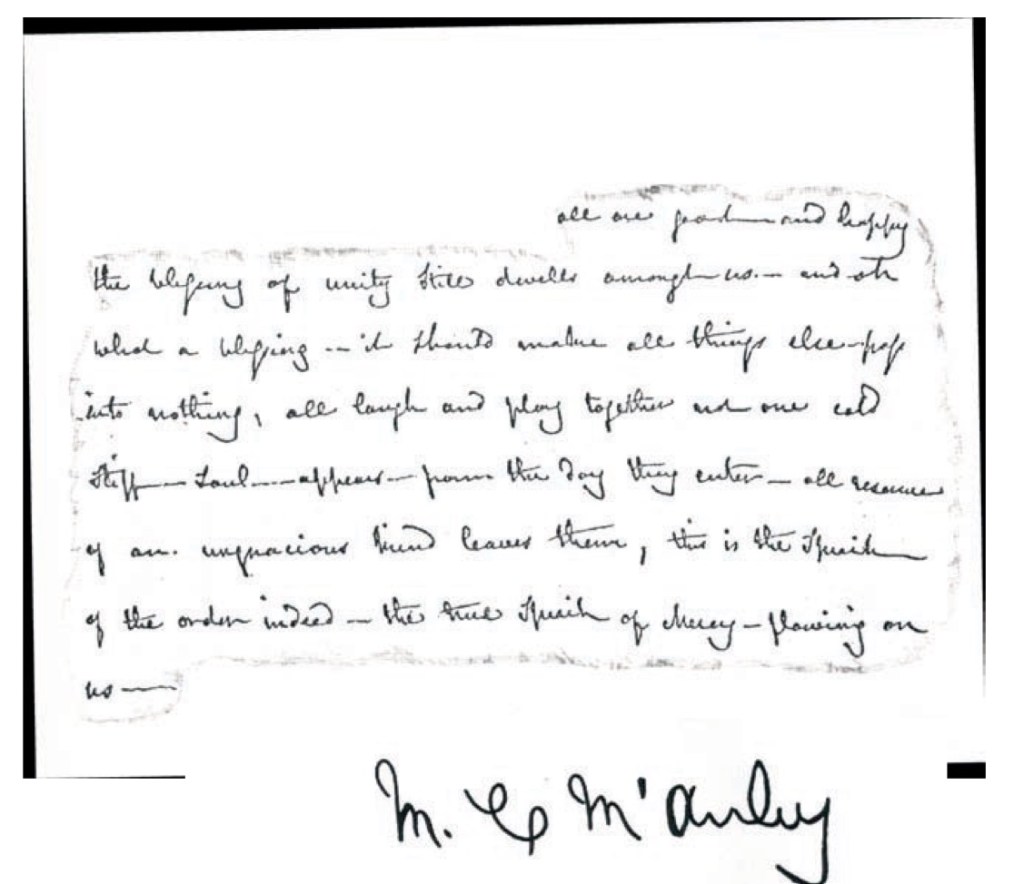 all are good — and happy
the blessing of unity still dwells amongst us — and oh
what a blessing — it should make all things else — pass
into nothing, all laugh and play together not one cold
stiff — soul — appears — from the day they enter — all reserve
of an. ungracious kind leaves them, this is the spirit
of the order indeed — the true spirit of Mercy — flowing on
us —
M. C M'Auley